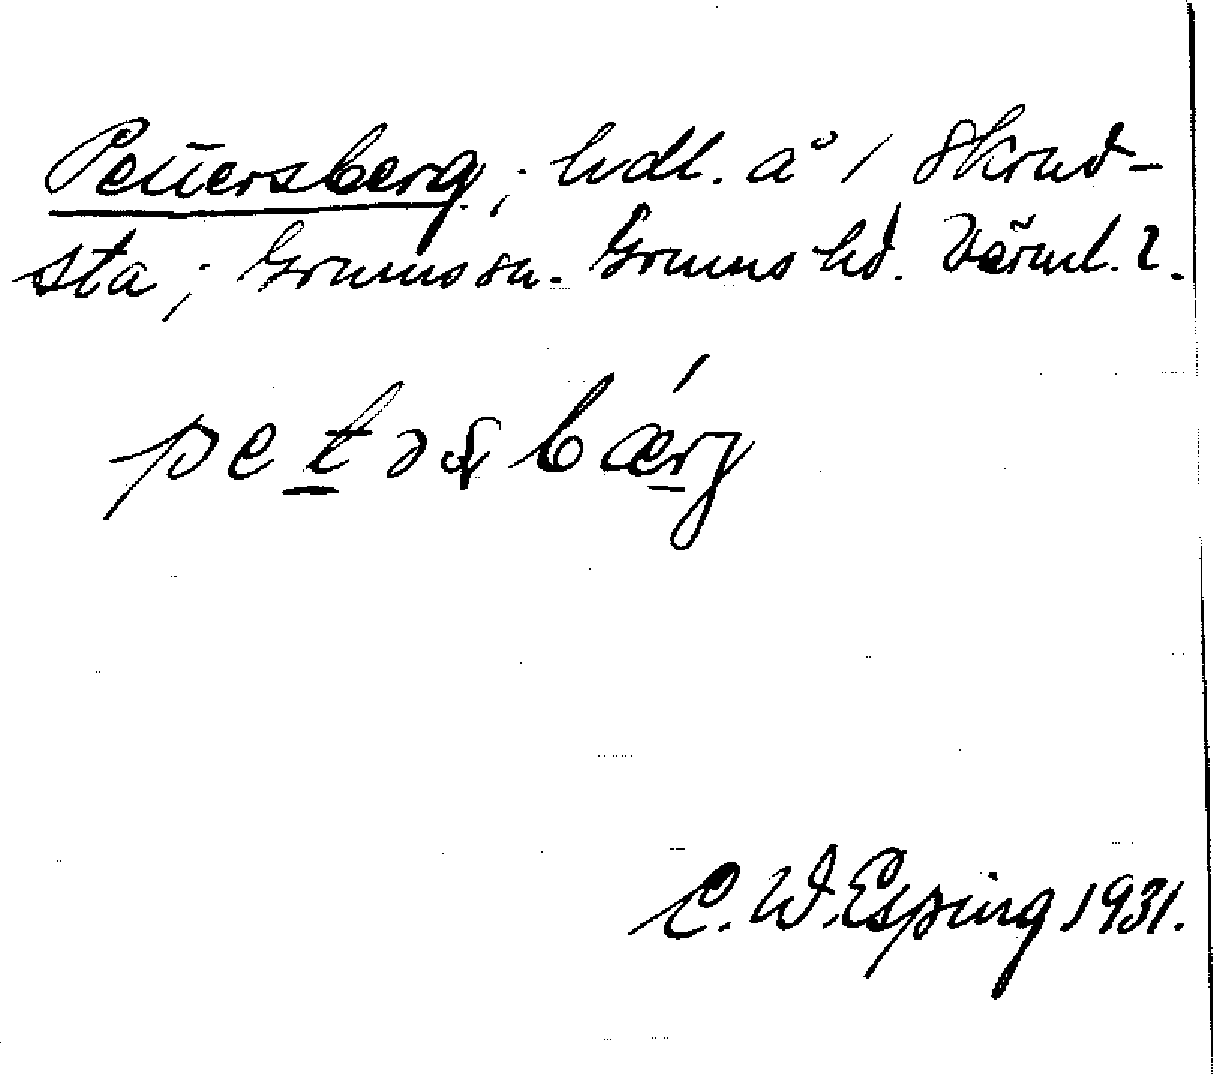 Pettersberg; hdl. å 1 Skruv-
sta; Grums sn. Grums hd. Värml. l.
petəʂbǽrg
C. W. Esping 1931.